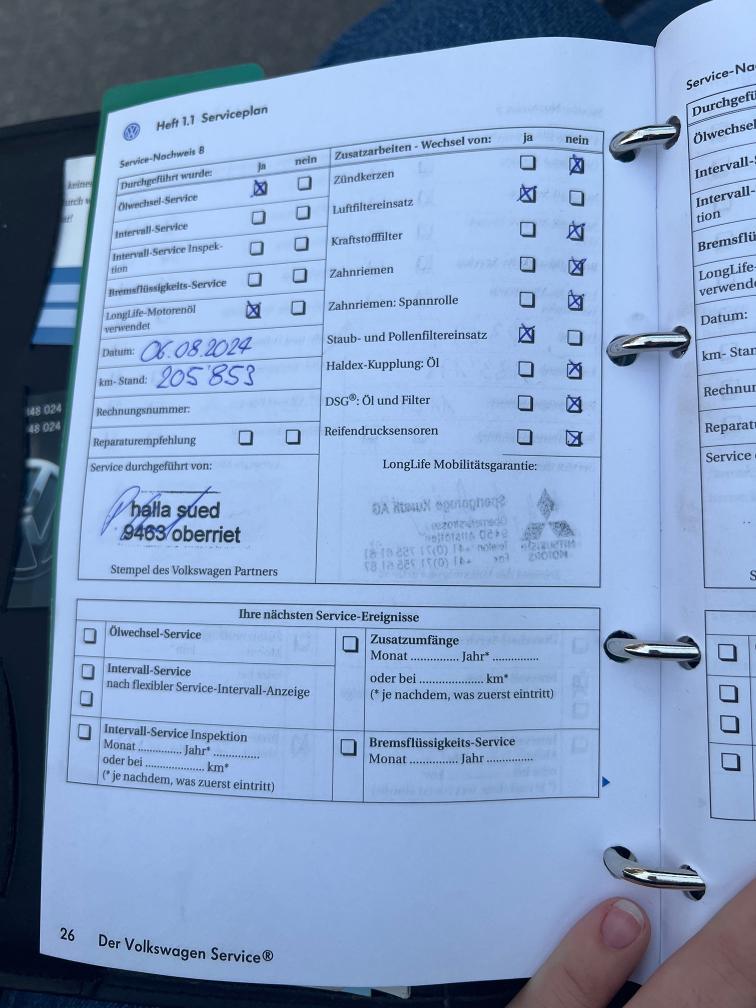 Heft 1.1 Serviceplan
Service-Nachweis 8
Durchgeführt wurde: ja nein
Ölwechsel-Service
Intervall-Service
Intervall-Service Inspek-
tion
Bremsflüssigkeits-Service
LongLife-Motorenöl
verwendet
Datum: 06.08.2024
km- Stand: 205'853
Rechnungsnummer:
Reparaturempfehlung
Service durchgeführt von:
halla sued
9463 oberriet
Stempel des Volkswagen Partners
Zusatzarbeiten - Wechsel von: ja nein
Zündkerzen
Luftfiltereinsatz
Kraftstofffilter
Zahnriemen
Zahnriemen: Spannrolle
Staub- und Pollenfiltereinsatz
Haldex-Kupplung: Öl
DSG®: Öl und Filter
Reifendrucksensoren
LongLife Mobilitätsgarantie:
Ihre nächsten Service-Ereignisse
Ölwechsel-Service
Intervall-Service
nach flexibler Service-Intervall-Anzeige
Intervall-Service Inspektion
Monat ............. Jahr* .............
oder bei ................... km*
(* je nachdem, was zuerst eintritt)
Zusatzumfänge
Monat ............... Jahr* ..............
oder bei .................... km*
(* je nachdem, was zuerst eintritt)
Bremsflüssigkeits-Service
Monat ............... Jahr ...............
26 Der Volkswagen Service®
Service-Na
Durchgefü
Ölwechsel
Intervall-
Intervall-
tion
Bremsflü
LongLife-
verwende
Datum:
km- Stan
Rechnur
Reparat
Service
48 024
48 024